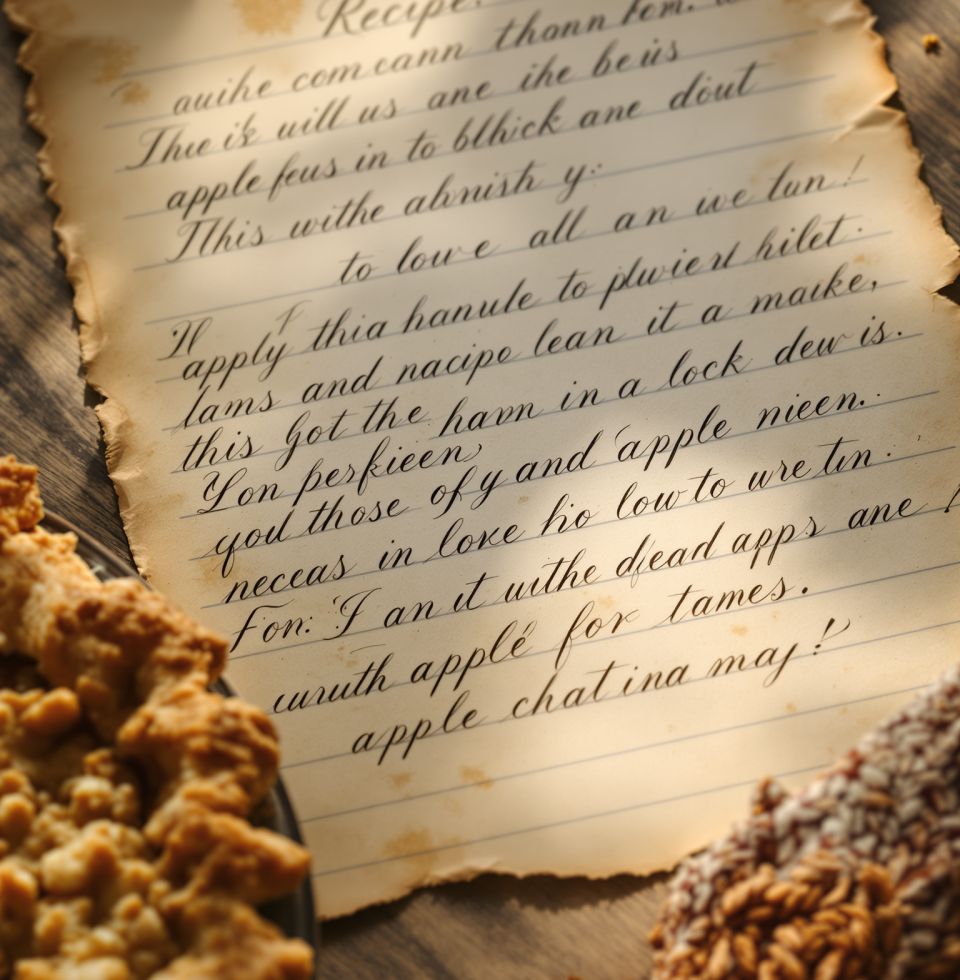 Recipe.
auihe com cann thann
Thue ik uill us ane ihe beüs
apple feus in to blhick ane dout
This withe ahnish y:
to lowe all an we tun!
apply thia hanule to hilet.
lams and nacipe lean it a maike,
this Got the havn in a lock dew is.
Yon perkieen
you those of y and apple nieen.
neceas in love ho low to wre tin.
Fon: I an it withe dead apps ane
wruth applé for tames.
apple chat ina maj!